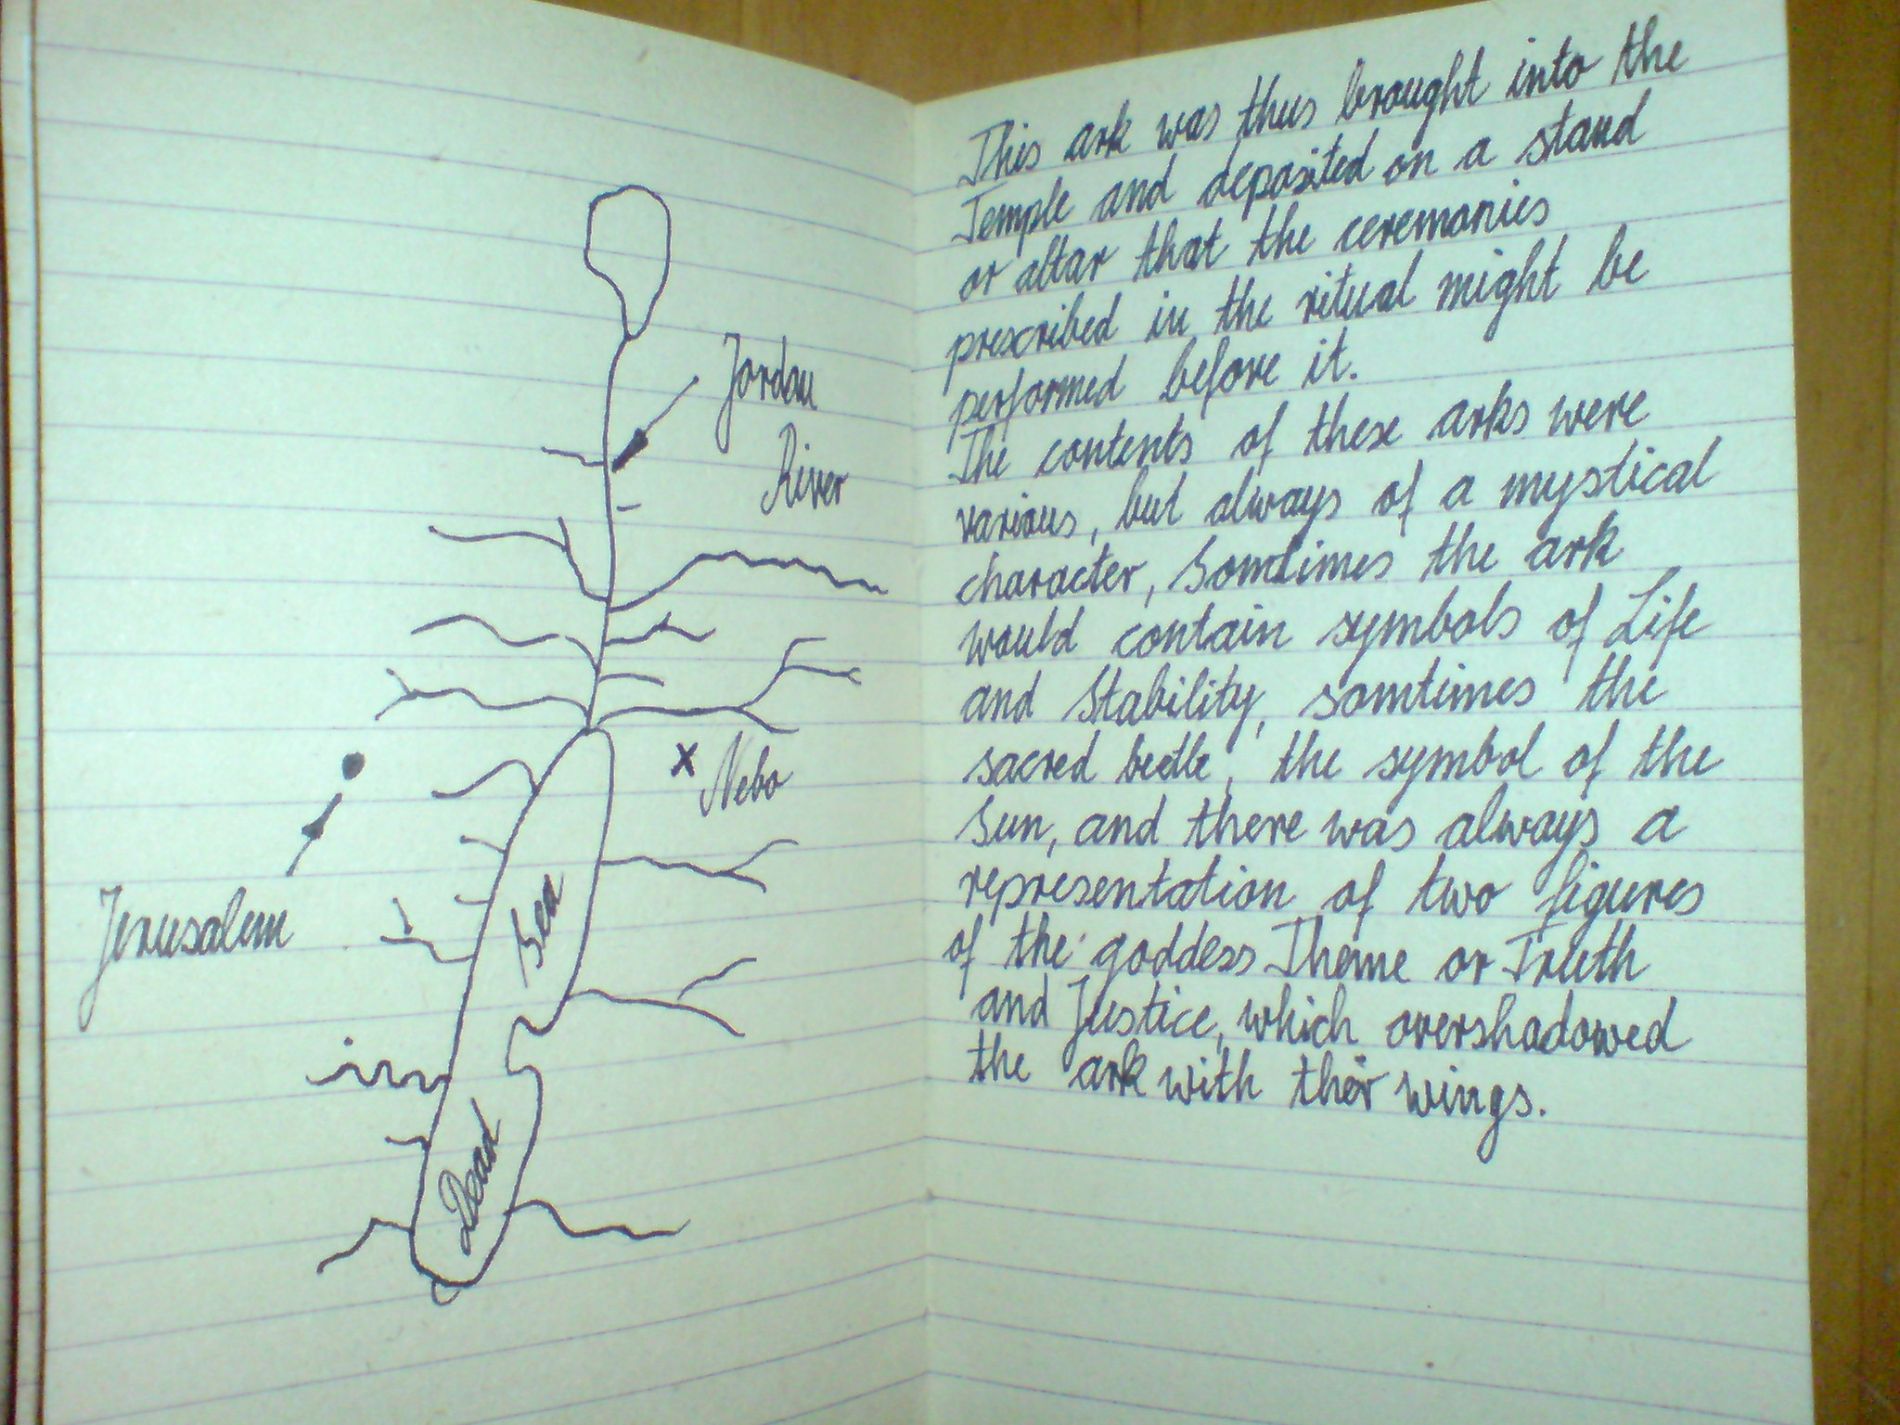 Jordan
River
x Nebo
Jerusalem
Dead Sea
This ark was thus brought into the
Temple and deposited on a stand
or altar that the ceremonies
prescribed in the ritual might be
performed before it.
The contents of these arks were
various, but always of a mystical
character, Somtimes the ark
would contain symbols of Life
and Stability, somtimes the
sacred beetle, the symbol of the
Sun, and there was always a
representation of two figures
of the goddess Theme or Truth
and Justice, which overshadowed
the ark with their wings.